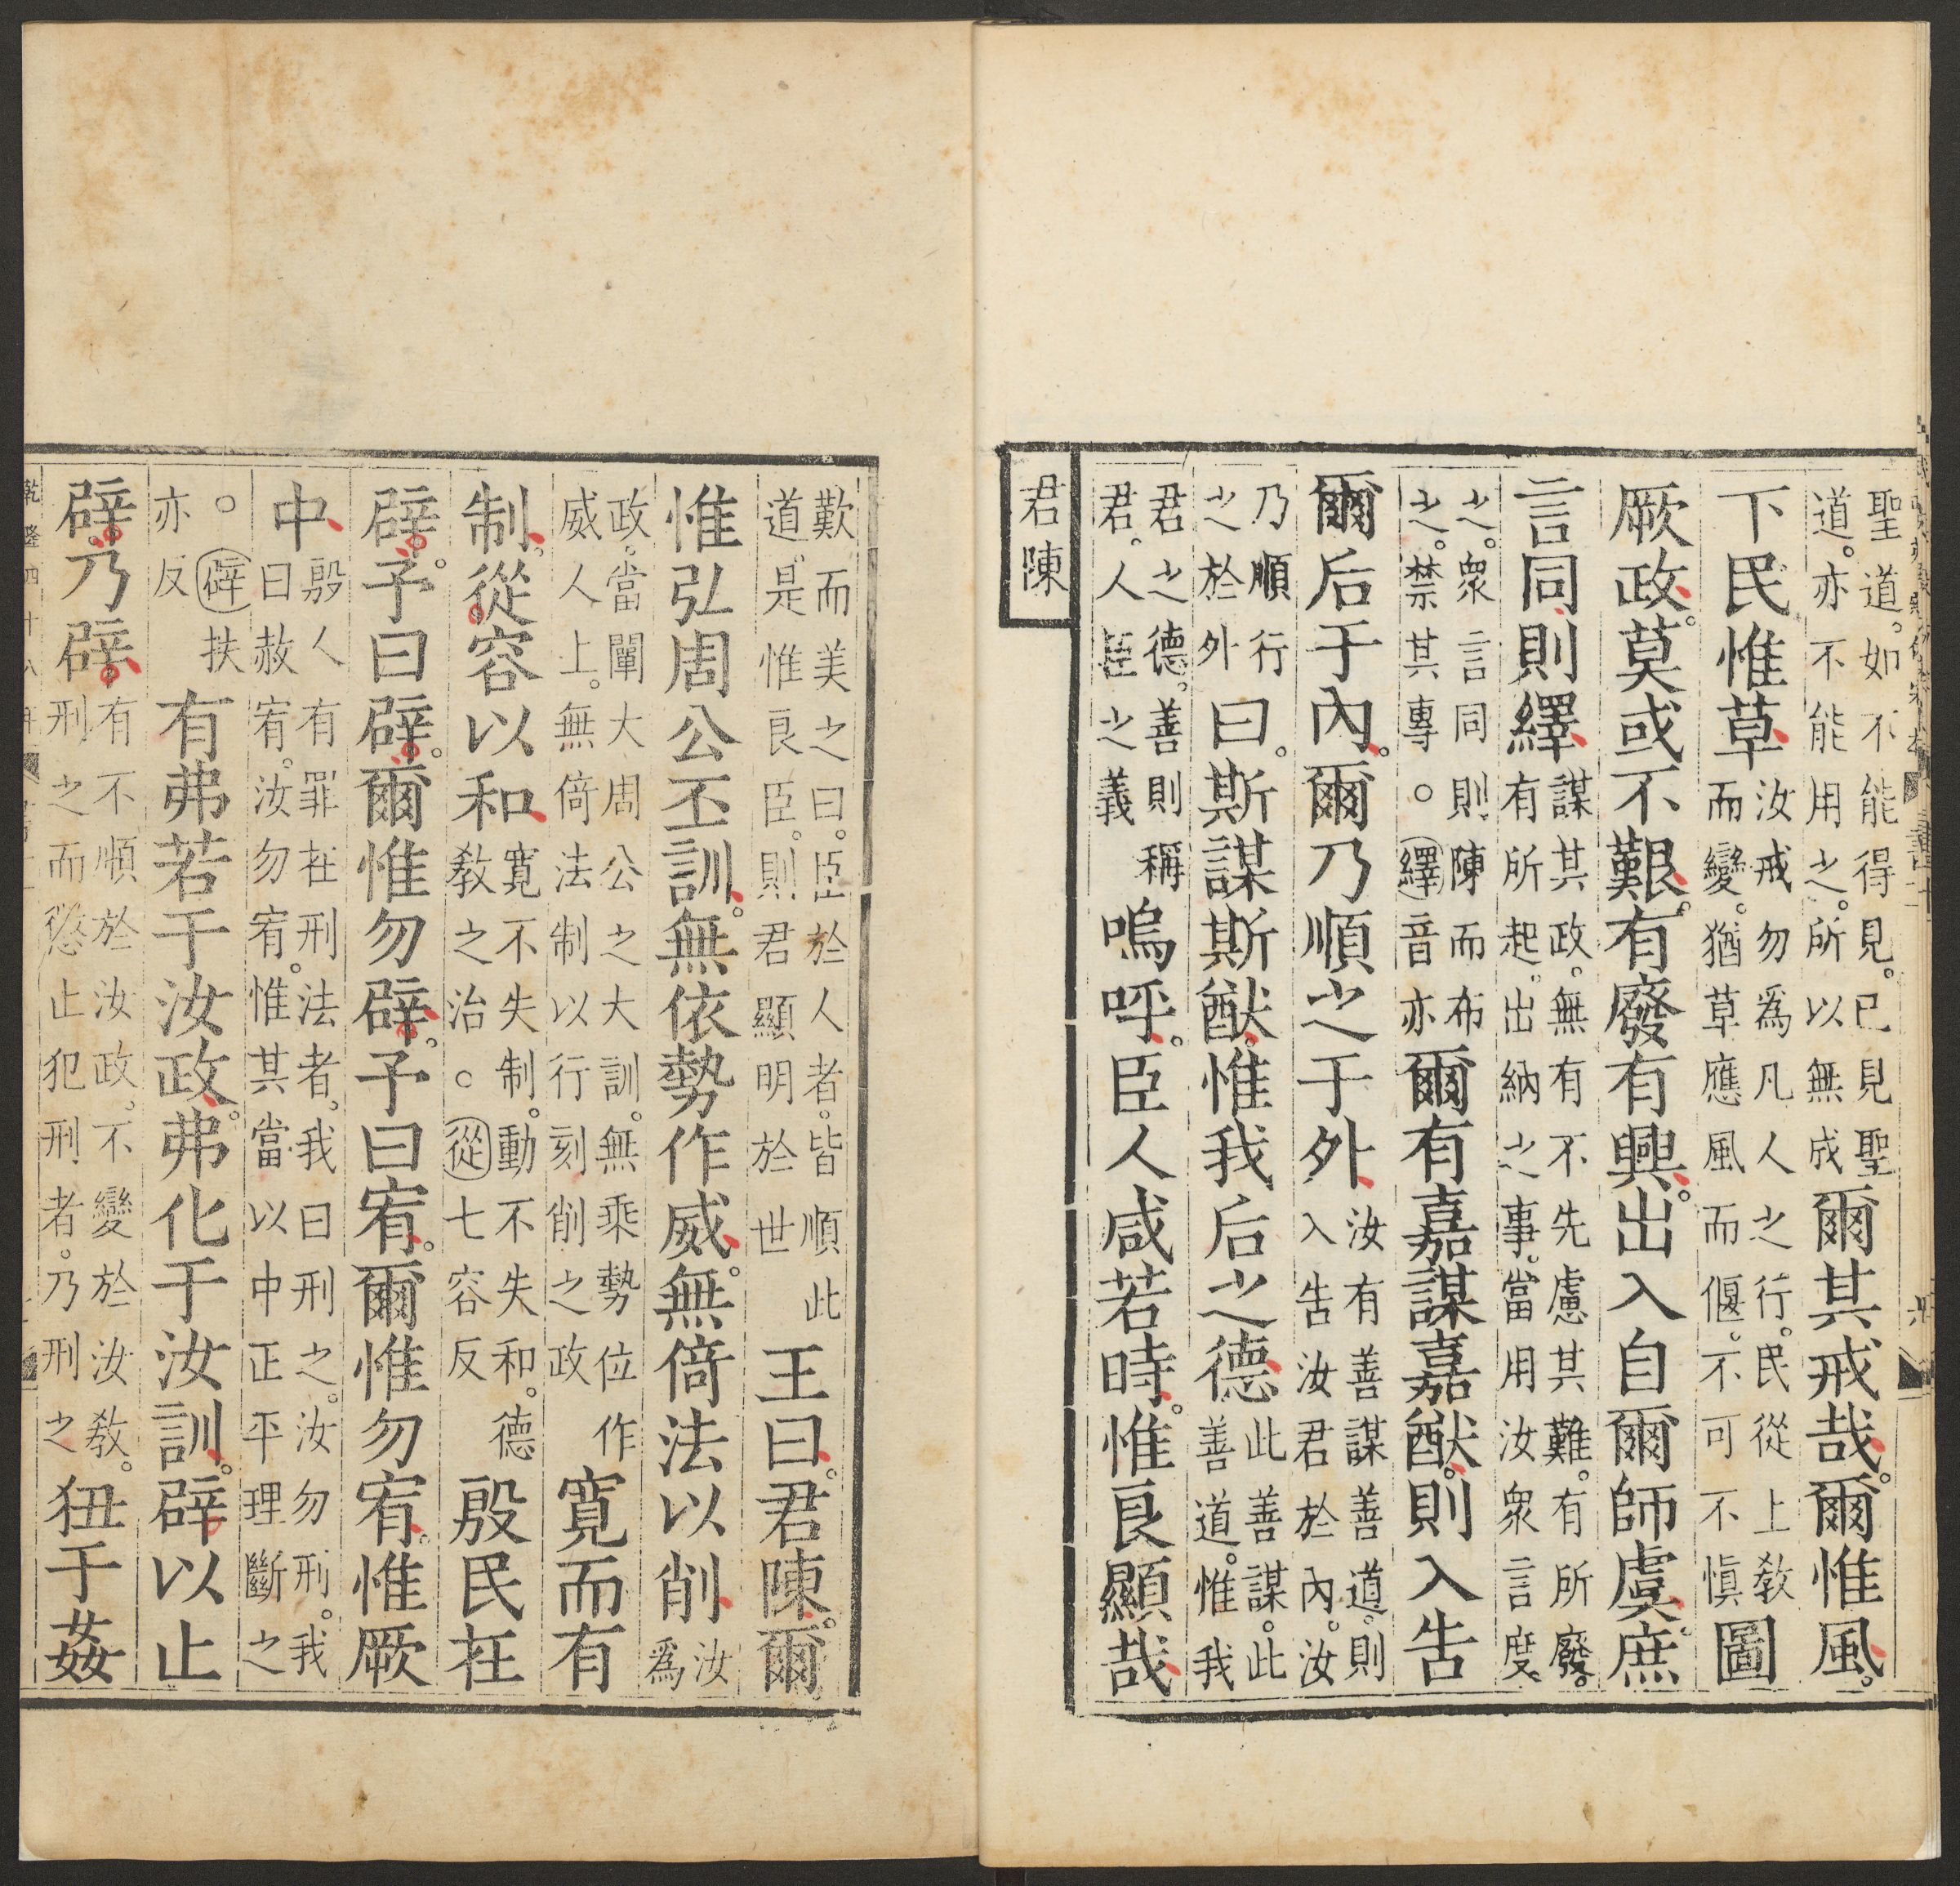 聖道。如不能得見。已見聖道。亦不能用之。所以無成爾其戒哉。爾惟風。
下民惟草汝戒勿爲凡人之行。民從上敎而變。猶草應風而偃。不可不慎圖
厥政。莫或不艱。有廢有興。出入自爾師虞。庶
言同則繹謀其政。無有不先慮其難。有所廢。有所起。出納之事。當用汝衆言度
之。衆言同則陳而布之。禁其專。○繹音亦爾有嘉謀嘉猷。則入告
爾后于內。爾乃順之于外汝有善謀善道。則入告汝君於內。汝
乃順行之於外曰。斯謀斯猷。惟我后之德此善謀。此善道。惟我
君之德。善則稱君。人臣之義嗚呼。臣人咸若時。惟良顯哉
君陳
歎而美之曰。臣於人者。皆順此道。是惟良臣。則君顯明於世王曰。君陳。爾
惟弘周公丕訓。無依勢作威。無倚法以削汝爲
政。當闡大周公之大訓。無乘勢位作威人上。無倚法制以行刻削之政寬而有
制。從容以和寬不失制。動不失和。德敎之治。○從七容反殷民在
辟。予曰辟。爾惟勿辟。予曰宥。爾惟勿宥。惟厥
中殷人有罪在刑法者。我曰刑之。汝勿刑。我曰赦宥。汝勿宥。惟其當以中正平理斷之
○辟扶亦反有弗若于汝政。弗化于汝訓。辟以止
辟。乃辟有不順於汝政。不變於汝敎。刑之而懲止犯刑者。乃刑之狃于姦
乾隆四十八年